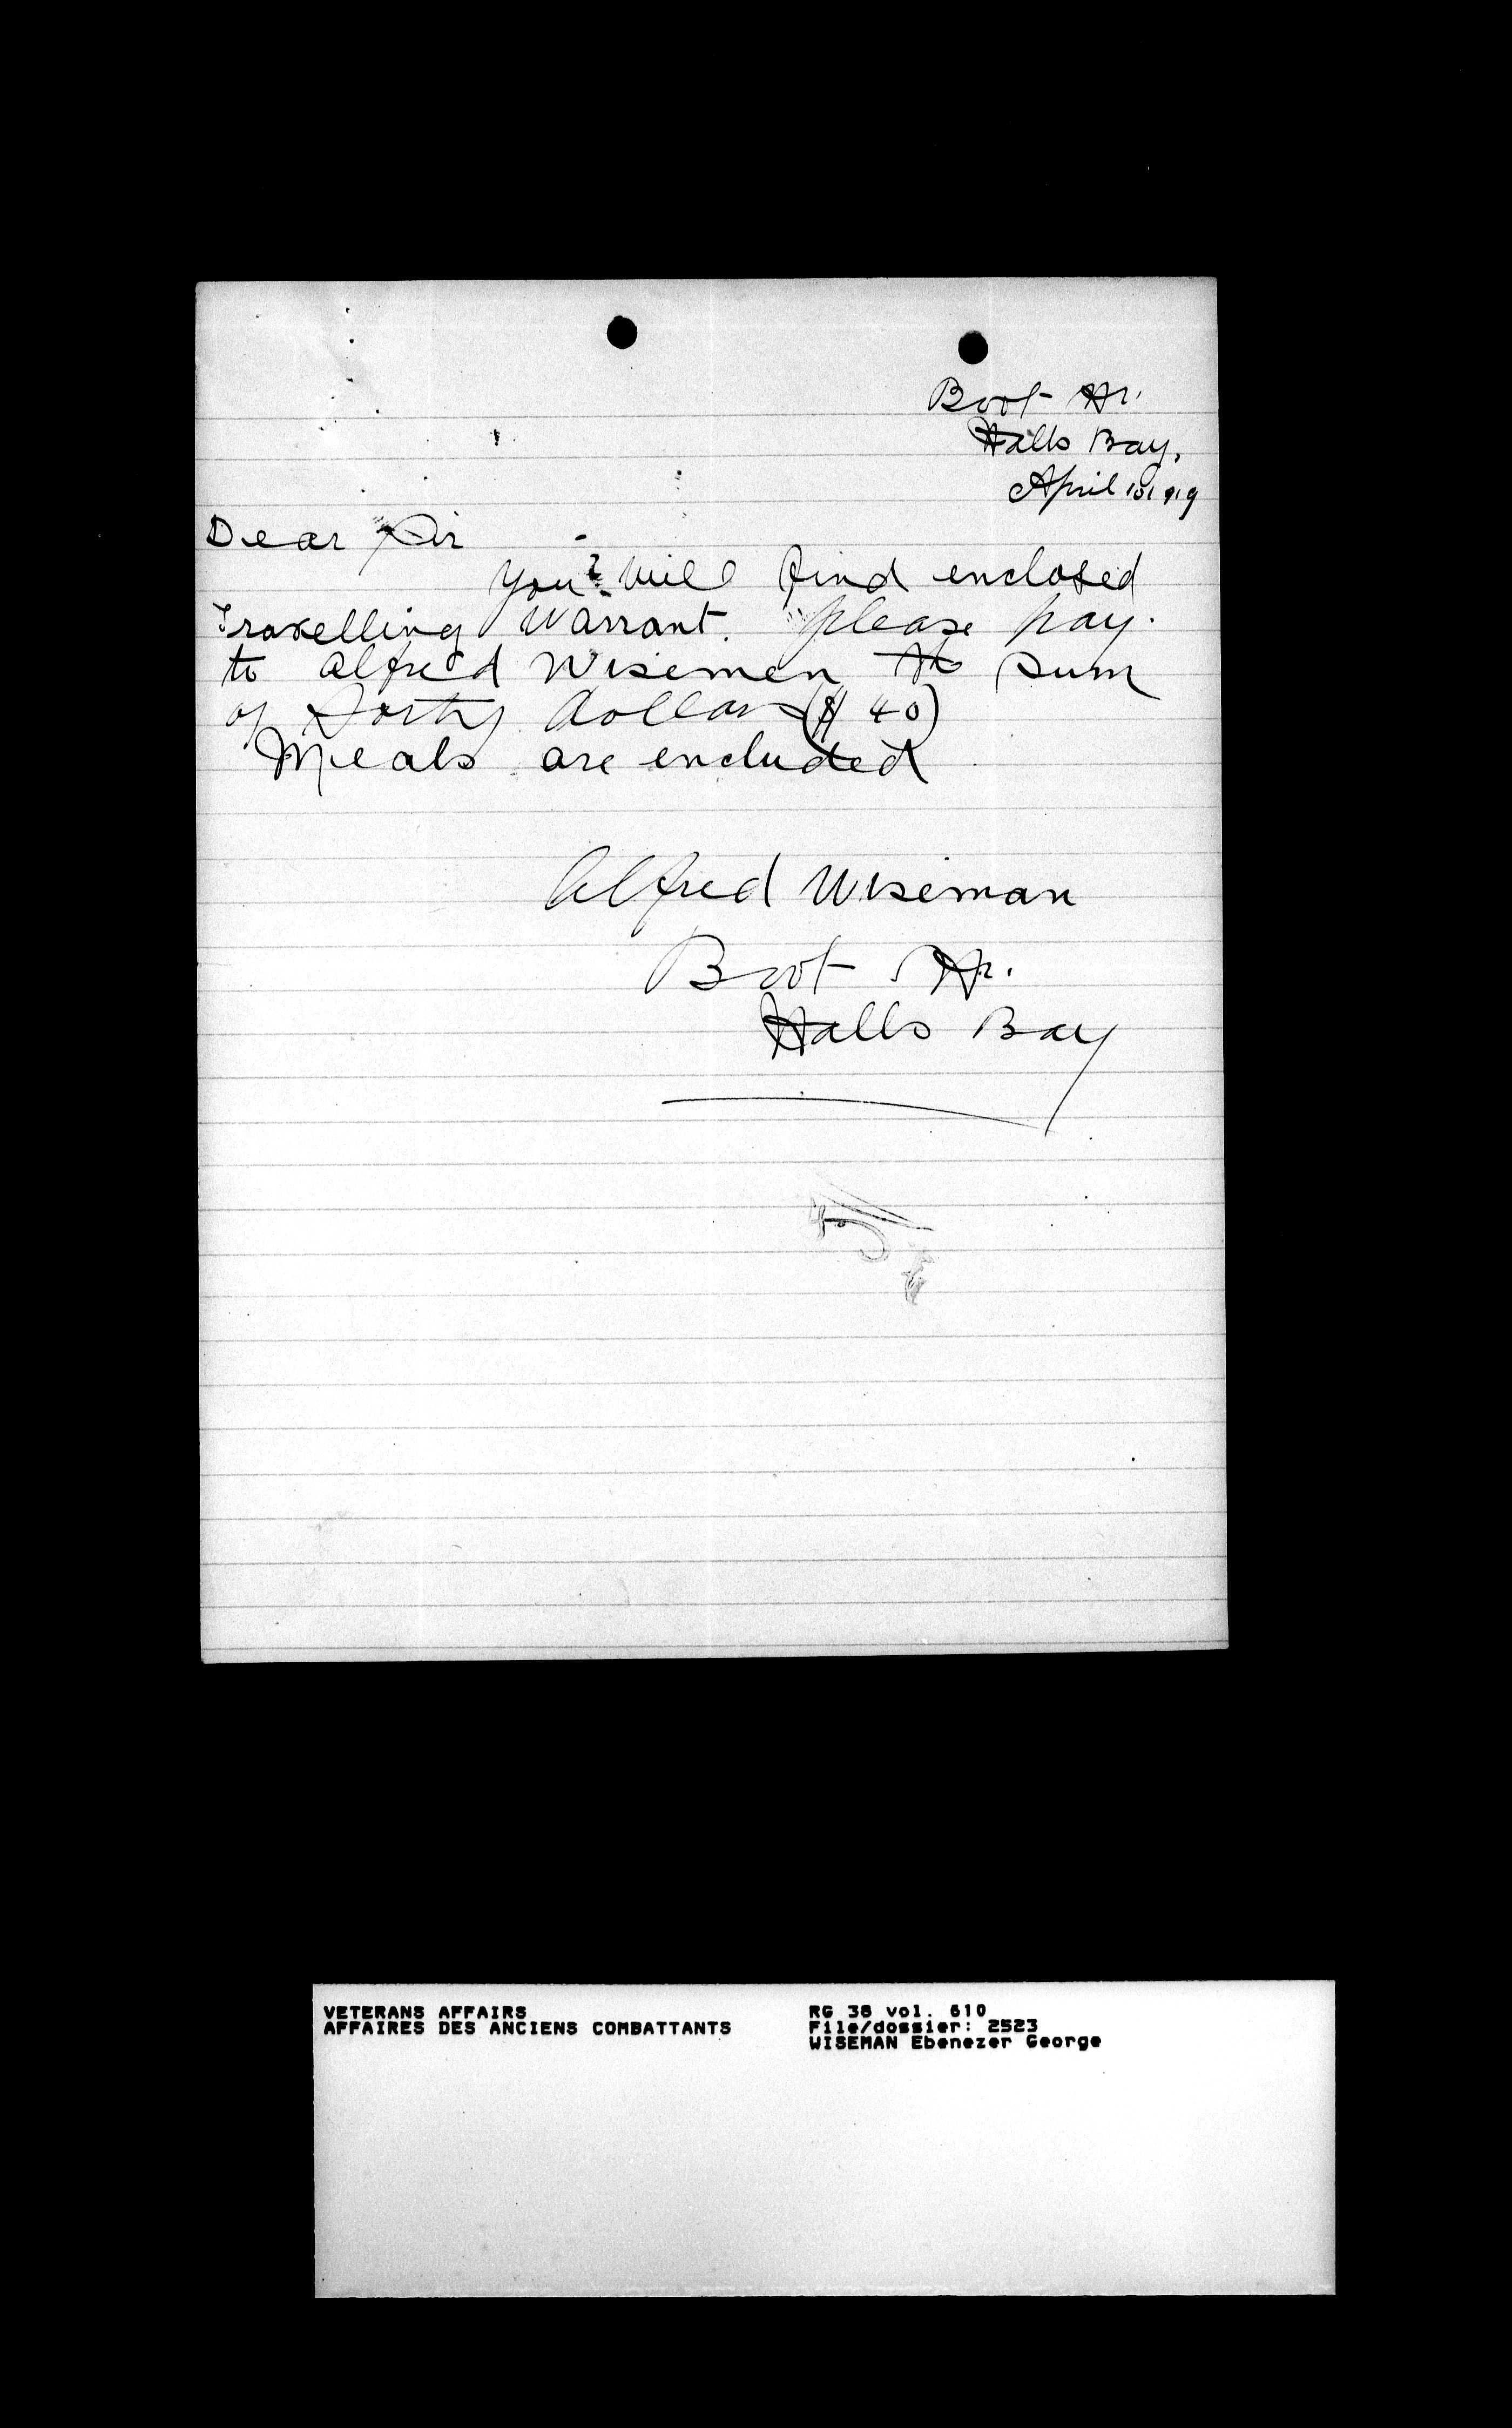 Boot Hr.
Halls Bay,
April 10 1919
Dear Sir
You will find enclosed
Travelling Warrant. please pay.
to Alfred Wisemen the sum
of Forty dollars ($40)
Meals are encluded
Alfred Wiseman
Boot Hr.
Halls Bay
VETERANS AFFAIRS
AFFAIRES DES ANCIENS COMBATTANTS
RG 38 vol. 610
File/dossier: 2523
WISEMAN Ebenezer George